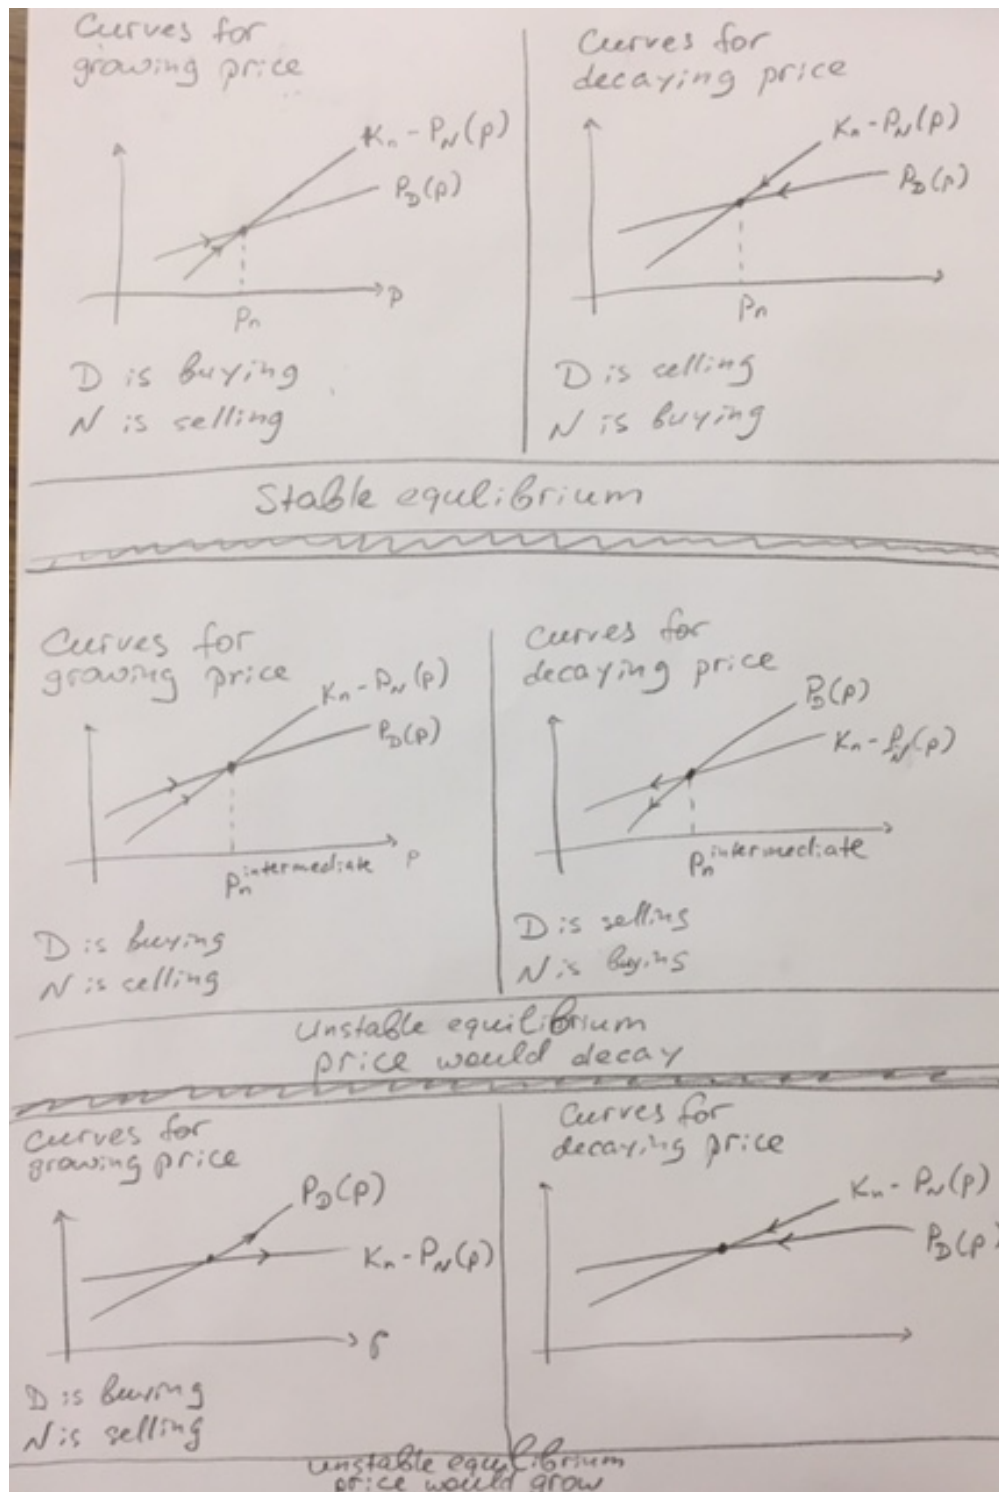 Curves for
growing price
Kn - PN(p)
PD(p)
p
pn
D is buying
N is selling
Curves for
decaying price
Kn - PN(p)
PD(p)
pn
D is selling
N is buying
Stable equlibrium
Curves for
growing price
Kn - PN(p)
PD(p)
pn intermediate
p
D is buying
N is selling
Curves for
decaying price
PD(p)
Kn - PN(p)
pn intermediate
D is selling
N is buying
Unstable equilibrium
price would decay
Curves for
growing price
PD(p)
Kn - PN(p)
D is buying
N is selling
Curves for
decaying price
Kn - PN(p)
PD(p)
unstable equilibrium
price would grow